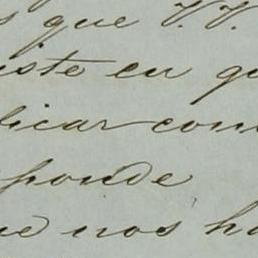 s que V.V.
iste en qu
licar con
ponde
ue nos ha